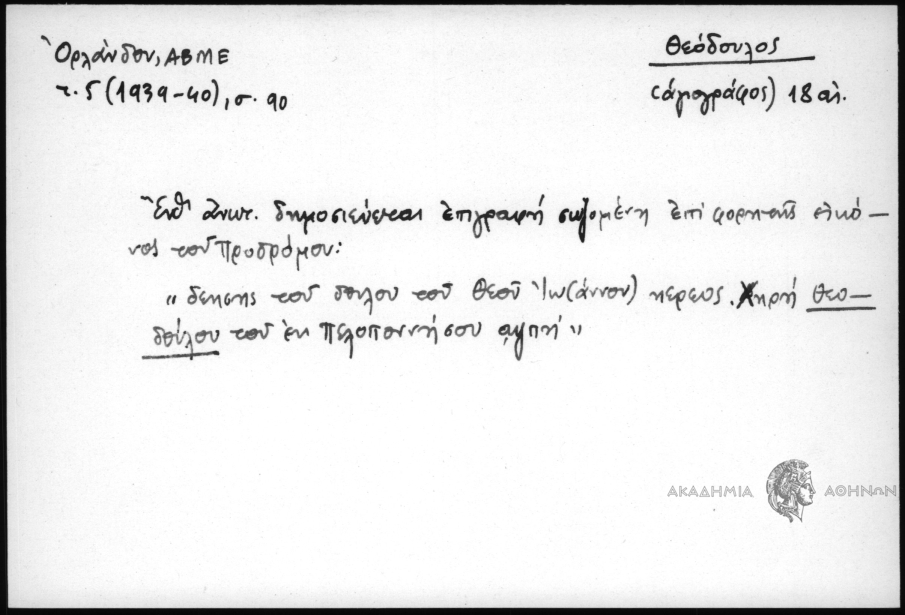 Ὀρλάνδου, ΑΒΜΕ
τ. 5 (1939-40), σ. 90
Θεόδουλος
(ἁγιογράφος) 18 αἰ.
Ἔνθ' ἄνωτ. δημοσιεύεται ἐπιγραφή σωζομένη ἐπί φορητῆς εἰκό-
νος τοῦ Προδρόμου:
" δεησης τοῦ δουλου τοῦ Θεοῦ Ἰω(άννου) ηερεως. Χηρή Θεο-
δούλου τοῦ ἐκ Πελοποννήσου "
ΑΚΑΔΗΜΙΑ ΑΘΗΝΩΝ